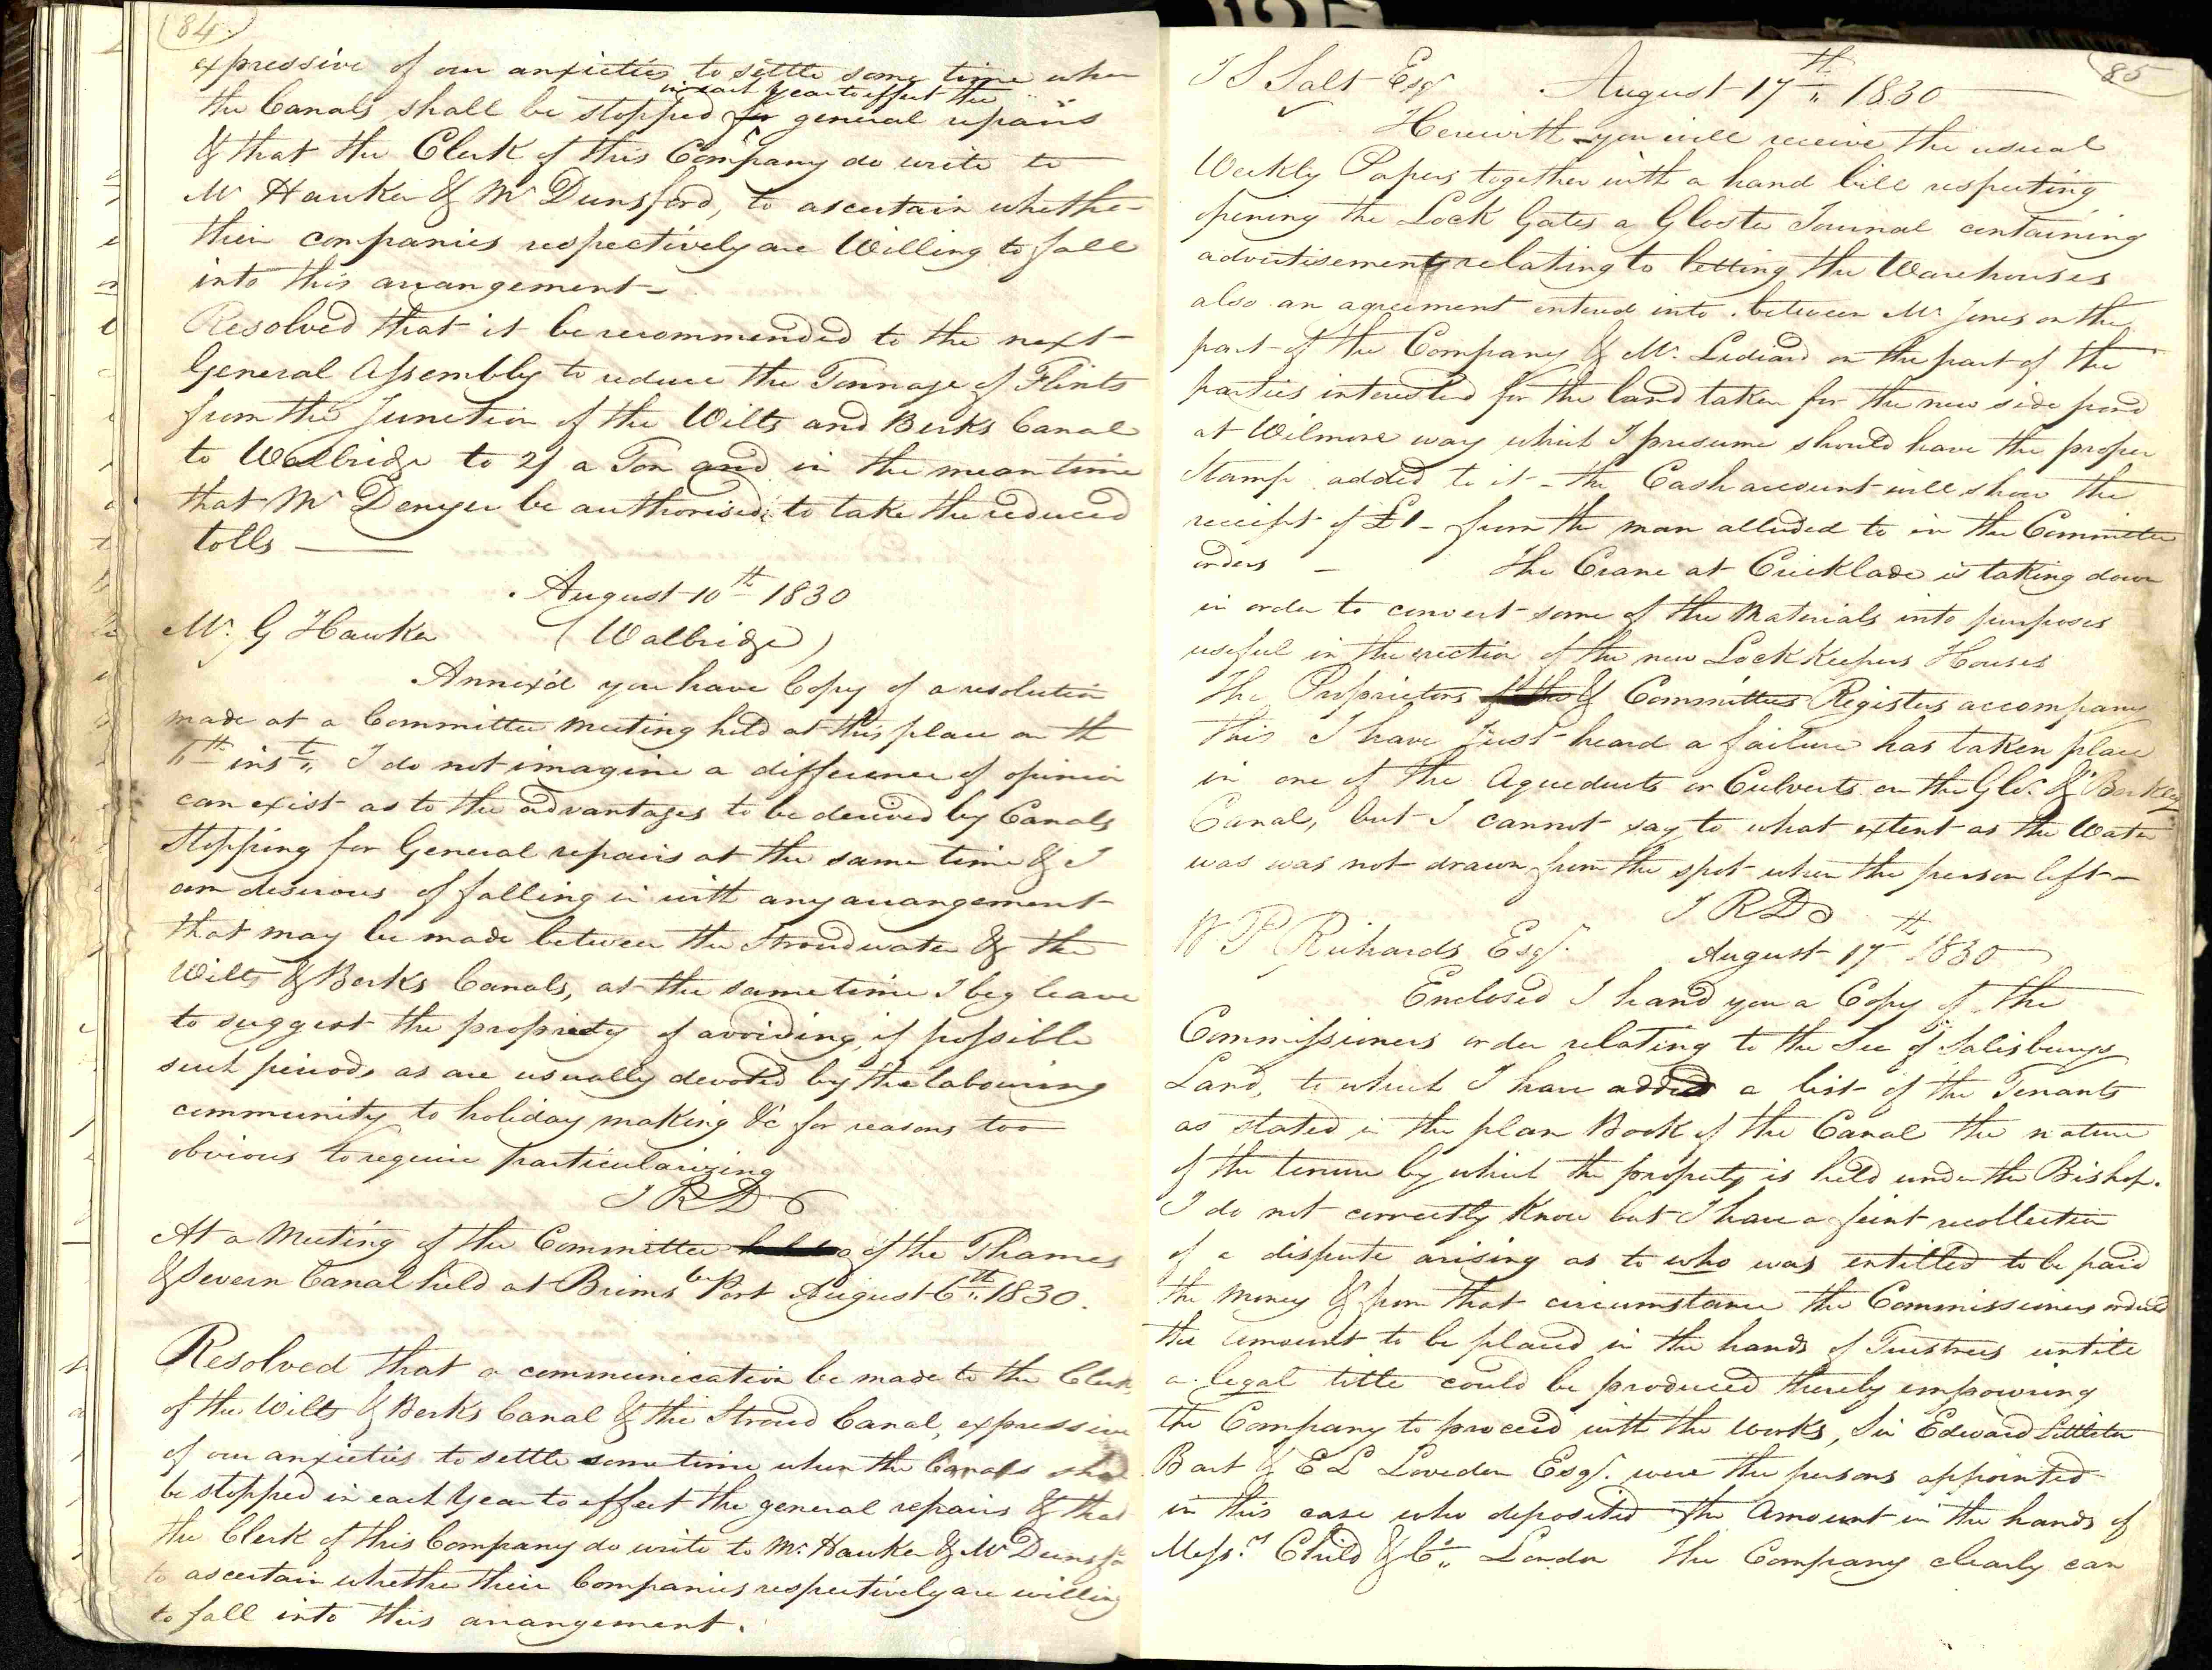 84
expressive of our anxieties to settle some time when
in each year to effect the
the Canals shall be stopped for general repairs
& that the Clerk of this Company do write to
Mr Hawker & Mr Dunsford, to ascertain whether
their companies respectively are Willing to fall
into this arrangement
Resolved that it be recommended to the next
General Assembly to reduce the Tonnage of Flints
from the Junction of the Wilts and Berks Canal
to Walbridge to 2/ a Ton and in the mean time
that Mr Denyer be authorised to take the reduced
tolls
August 10th 1830
Mr. G Hawker (Walbridge)
Annex'd you have Copy of a resolution
made at a Committee meeting held at this place on th
inst. I do not imagine a difference of opinion
can exist as to the advantages to be derived by Canals
Stopping for General repairs at the same time & I
am desirous of falling in with any arrangement
that may be made between the Stroudwater & the
Wilts & Berks Canals, at the same time I beg leave
to suggest the propriety of avoiding, if possible
such periods as are usually devoted by the labouring
community to holiday making &c for reasons too
obvious to require particularizing
J R D
At a Meeting of the Committee of the Thames
& Severn Canal held at Brims Port August 6th 1830.
Resolved that a communication be made to the Clerk
of the Wilts & Berks Canal & the Stroud Canal, expressive
of our anxieties to settle some time when the Canals shal
be stopped in each Year to effect the general repairs & that
the Clerk of this Company do write to Mr. Hawker & Mr Dunsfd
to ascertain whether their Companies respectively are willing
to fall into this arrangement.
85
J S Salt Esqr August 17th 1830
Herewith you will receive the usual
Weekly Papers together with a hand bill respecting
opening the Lock Gates a Gloster Journal containing
advertisements relating to letting the Warehouses
also an agreement entered into between Mr Jones on the
part of the Company & Mr. Lediard on the part of the
parties interested for the land taken for the new side pond
at Wilmore way which I presume should have the proper
Stamp added to it - the Cash account will show the
receipt of £1 - from the man alluded to in the Committee
orders - The Crane at Cricklade is taking down
in order to convert some of the Materials into purposes
useful in the erection of the new Lock Keepers Houses
The Proprietors & Committees Registers accompany
this I have just heard a failure has taken place
in one of the Aqueducts or Culverts on the Glr. & Berkley
Canal, but I cannot say to what extent as the Water
was was not drawn from the spot when the person left -
J R D
W P Richards Esqr. August 17th 1830
Enclosed I hand you a Copy of the
Commissioners order relating to the See of Salisburys
Land, to which I have added a list of the Tenants
as stated in the plan Book of the Canal the nature
of the tenure by which the property is held under the Bishop.
I do not correctly Know but I have a feint recollection
of a dispute arising as to who was entitled to be paid
the money & from that circumstance the Commissioners ordered
the amount to be placed in the hands of Trustees untile
a legal title could be produced thereby empowring
the Company to proceed with the works, Sir Edward Littleton
Bart & E L Loveden Esqr. were the persons appointed
in this case who deposited the Amount in the hands of
Messrs. Child & Co. London The Company clearly can